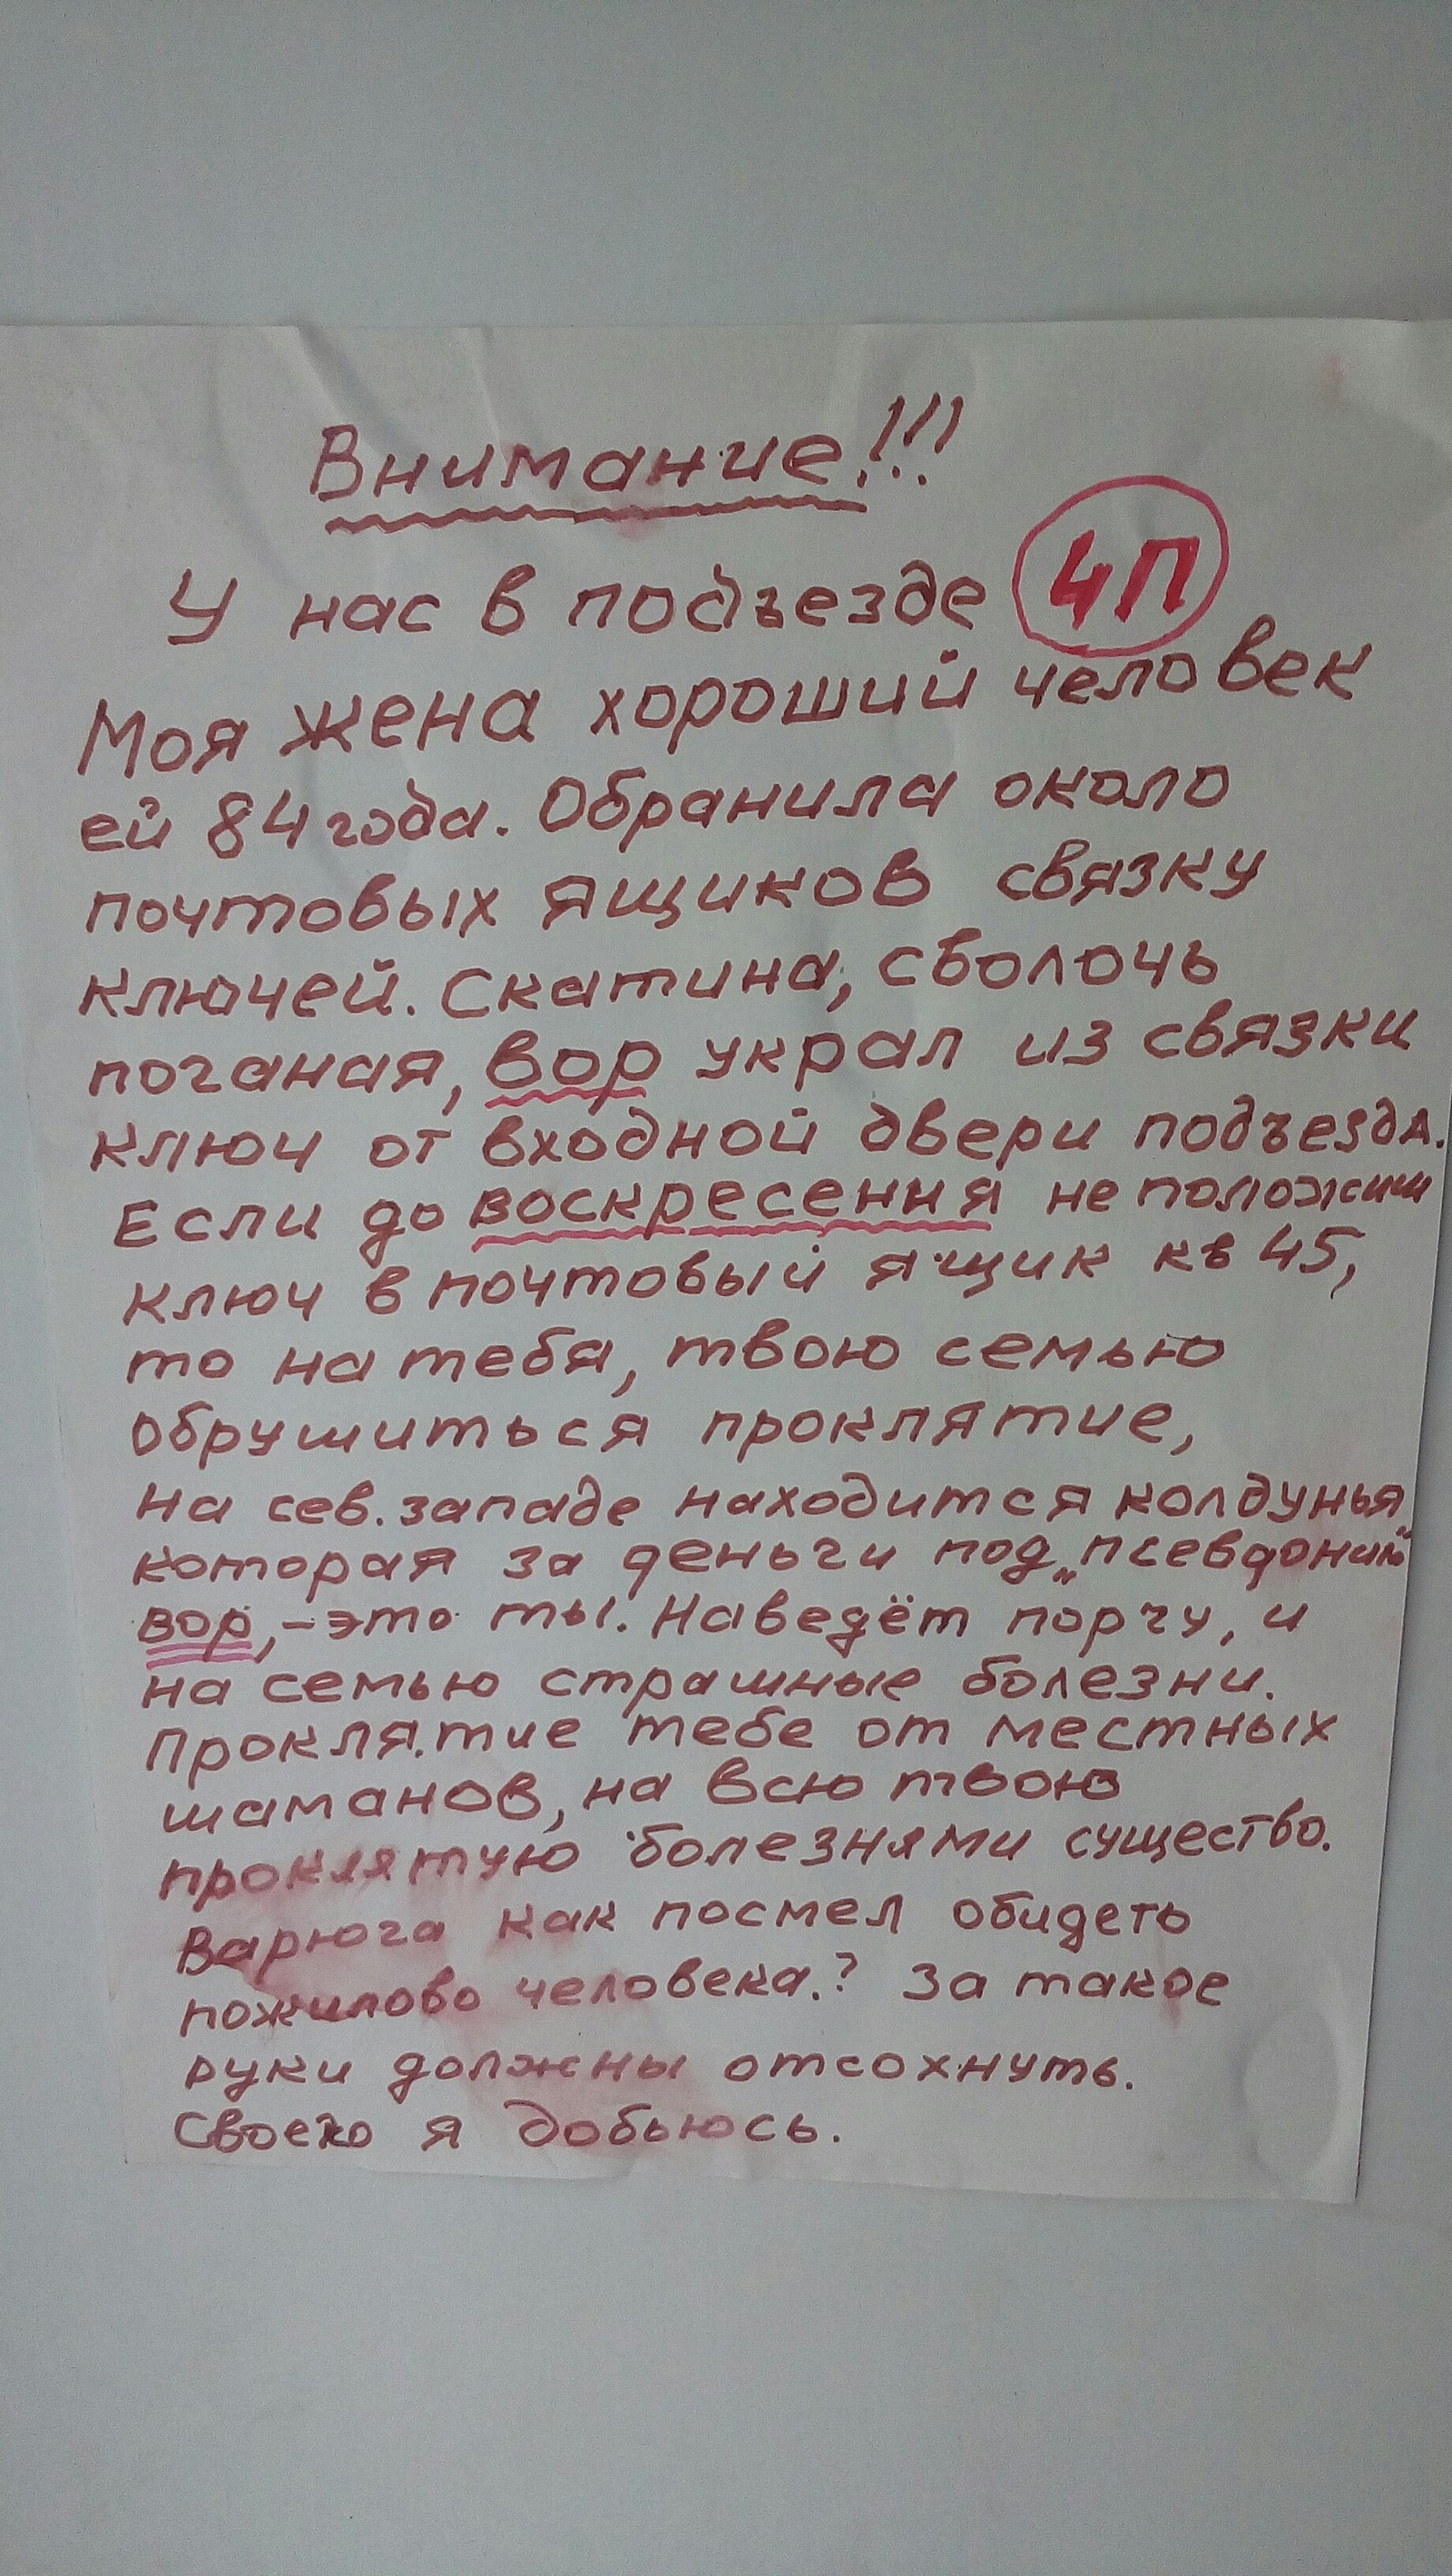 Внимание!!!
У нас в подъезде 4П
Моя жена хороший человек
ей 84 года. Обранила около
почтовых ящиков связку
ключей. Скатина, сволочь
поганая, вор украл из связки
ключ от входной двери подъезда.
Если до воскресения не положиш
ключ в почтовый ящик кв 45,
то на тебя, твою семью
обрушиться проклятие,
на сев. западе находится колдунья
которая за деньги под „псевдоним"
вор, - это ты. Наведёт порчу, и
на семью страшные болезни.
Проклятие тебе от местных
шаманов, на всю твою
проклятую болезнями существо.
Варюга как посмел обидеть
пожилово человека.? За такое
руки должны отсохнуть.
Своего я добьюсь.